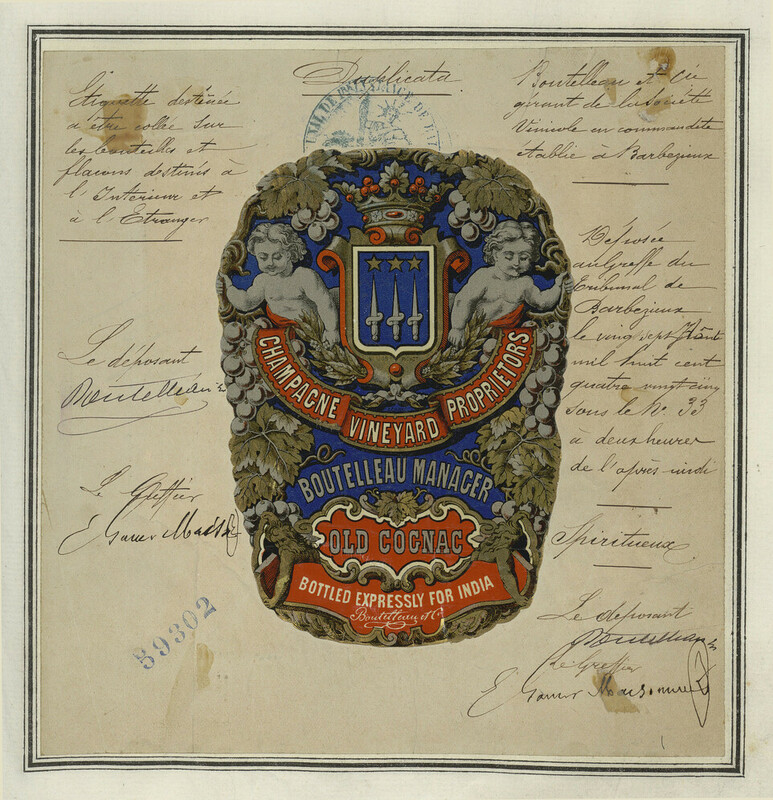 Duplicata
Etiquette destinée
à être collée sur
les bouteilles et
flacons destinés à
l'Interieur et
à l'Etranger
Le déposant
Boutelleau
Le Greffier
89302
CHAMPAGNE VINEYARD PROPRIETORS
BOUTELLEAU MANAGER
OLD COGNAC
BOTTLED EXPRESSLY FOR INDIA
Boutelleau & Co
Boutelleau et Cie
gérant de la Société
Vinicole en commandite
établie à Barbezieux
Déposée
au Greffe du
tribunal de
Barbezieux
le vingt sept
mil huit cent
quatre vingt cinq
sous le No. 33
à deux heures
de l'après midi
Spiritueux
Le déposant
Boutelleau
Le Greffier